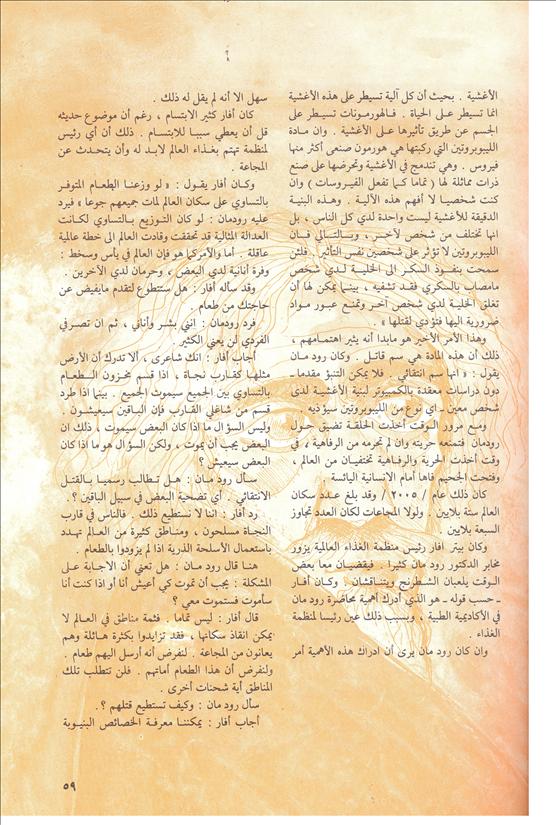 الأغشية . بحيث أن كل آلية تسيطر على هذه الأغشية
انما تسيطر على الحياة . فالهورمونات تسيطر على
الجسم عن طريق تأثيرها على الأغشية . وان مادة
الليبوبروتين التي ركبتها هي هورمون صنعي أكثر منها
فيروس . وهي تندمج في الأغشية وتحرضها على صنع
ذرات مماثلة لها ( تماما كما تفعل الفيروسات ) وان
كنت شخصيا لا أفهم هذه الآلية . وهذه البنية
الدقيقة للأغشية ليست واحدة لدى كل الناس ، بل
انها تختلف من شخص لآخر ، وبالتالي فان
الليبوبروتين لا تؤثر على شخصين نفس التأثير . فلئن
سمحت بنفوذ السكر الى الخلية لدى شخص
مامصاب بالسكري فقد تشفيه ، بينما يمكن لها أن
تغلق الخلية لدى شخص آخر وتمنع عبور مواد
ضرورية اليها فتؤدي لقتلها » .
وهذا الأمر الأخير هو مابدا أنه يثير اهتمامهم ،
ذلك أن هذه المادة هي سم قاتل . وكان رود مان
يقول : « انها سم انتقائي . فلا يمكن التنبؤ مقدما ـ
دون دراسات معقدة بالكمبيوتر لبنية الأغشية لدى
شخص معين ـ اي نوع من الليبوبروتين سيؤذيه .
ومع مرور الوقت أخذت الحلقة تضيق حول
رودمان فتمنعه حريته وان لم تحرمه من الرفاهية ، في
وقت أخذت الحرية والرفاهية تختفيان من العالم ،
وفتحت الجحيم فاها أمام الانسانية اليائسة .
كان ذلك عام / ٢٠٠٥ / وقد بلغ عدد سكان
العالم ستة بلايين . ولولا المجاعات لكان العدد تجاوز
السبعة بلايين .
وكان بيتر افار رئيس منظمة الغذاء العالمية يزور
مخابر الدكتور رود مان كثيرا . فيقضيان معا بعض
الوقت يلعبان الشطرنج ويتناقشان . وكان أفار
ـ حسب قوله ـ هو الذي أدرك أهمية محاضرة رود مان
في الأكاديمية الطبية ، وبسبب ذلك عين رئيسا لمنظمة
الغذاء .
وان كان رود مان يرى أن ادراك هذه الأهمية أمر
سهل الا أنه لم يقل له ذلك .
كان أفار كثير الابتسام ، رغم أن موضوع حديثه
قل أن يعطي سببا للابتسام . ذلك أن أي رئيس
لمنظمة تهتم بغذاء العالم لابد له وأن يتحدث عن
المجاعة .
وكان أفار يقول : « لو وزعنا الطعام المتوفر
بالتساوي على سكان العالم لمات جميعهم جوعا » فيرد
عليه رودمان : لو كان التوزيع بالتساوي لكانت
العدالة المثالية قد تحققت وقادت العالم الى خطة عالمية
عاقلة . أما والأمر كما هو فإن العالم في يأس وسخط :
وفرة أنانية لدى البعض ، وحرمان لدى الآخرين .
وقد سأله أفار : هل ستتطوع لتقدم مايفيض عن
حاجتك من طعام .
فرد رودمان : إنني بشر وأناني ، ثم ان تصرفي
الفردي لن يعني الكثير .
أجاب أفار : انك شاعري ، ألا تدرك أن الأرض
مثلها كقارب نجاة ، اذا قسم مخزون الطعام
بالتساوي بين الجميع سيموت الجميع . بينما اذا طرد
قسم من شاغلي القارب فإن الباقين سيعيشون .
وليس السؤال ما اذا كان البعض سيموت ، ذلك ان
البعض يجب أن يموت ، ولكن السؤال هو ما اذا كان
البعض سيعيش ؟
سأل رود مان : هل تطالب رسميا بالقتل
الانتقائي . أي تضحية البعض في سبيل الباقين ؟ .
رد أفار : اننا لا نستطيع ذلك . فالناس في قارب
النجاة مسلحون ، ومناطق كثيرة من العالم تهدد
باستعمال الأسلحة الذرية اذا لم يزودوا بالطعام .
هنا قال رود مان : هل تعني أن الاجابة على
المشكلة : يجب أن تموت كي أعيش أنا أو اذا كنت أنا
سأموت فستموت معي ؟
قال أفار : ليس تماما . فثمة مناطق في العالم لا
يمكن انقاذ سكانها ، فقد تزايدوا بكثرة هائلة وهم
يعانون من المجاعة . لنفرض أنه أرسل اليهم طعام .
ولنفرض أن هذا الطعام أماتهم . فلن تتطلب تلك
المناطق أية شحنات أخرى .
سأل رود مان : وكيف تستطيع قتلهم ؟ .
أجاب أفار : يمكننا معرفة الخصائص البنيوية
٥٩